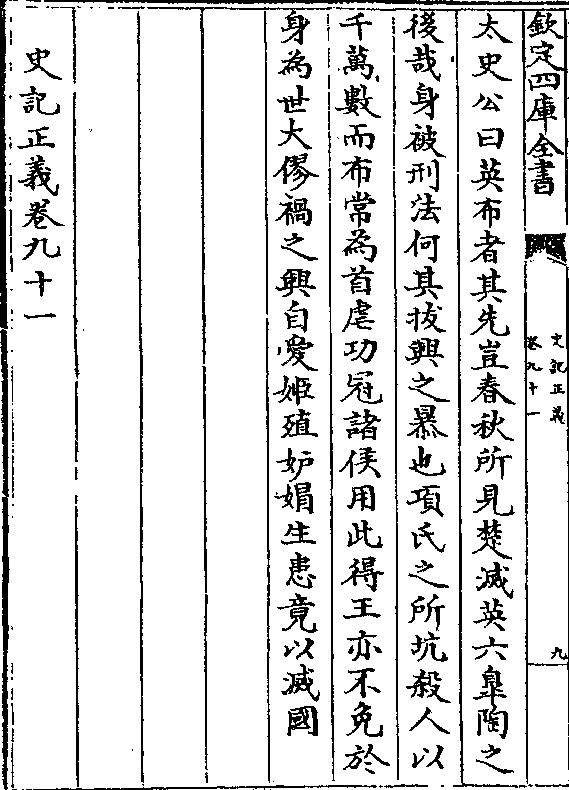 欽定四庫全書
史記正義
卷九十一
九
太史公曰英布者其先豈春秋所見楚滅英六臯陶之
後哉身被刑法何其拔興之暴也項氏之所坑殺人以
千萬數而布常為首虐功冠諸侯用此得王亦不免於
身為世大僇禍之興自愛姬殖妒媢生患竟以滅國
史記正義卷九十一